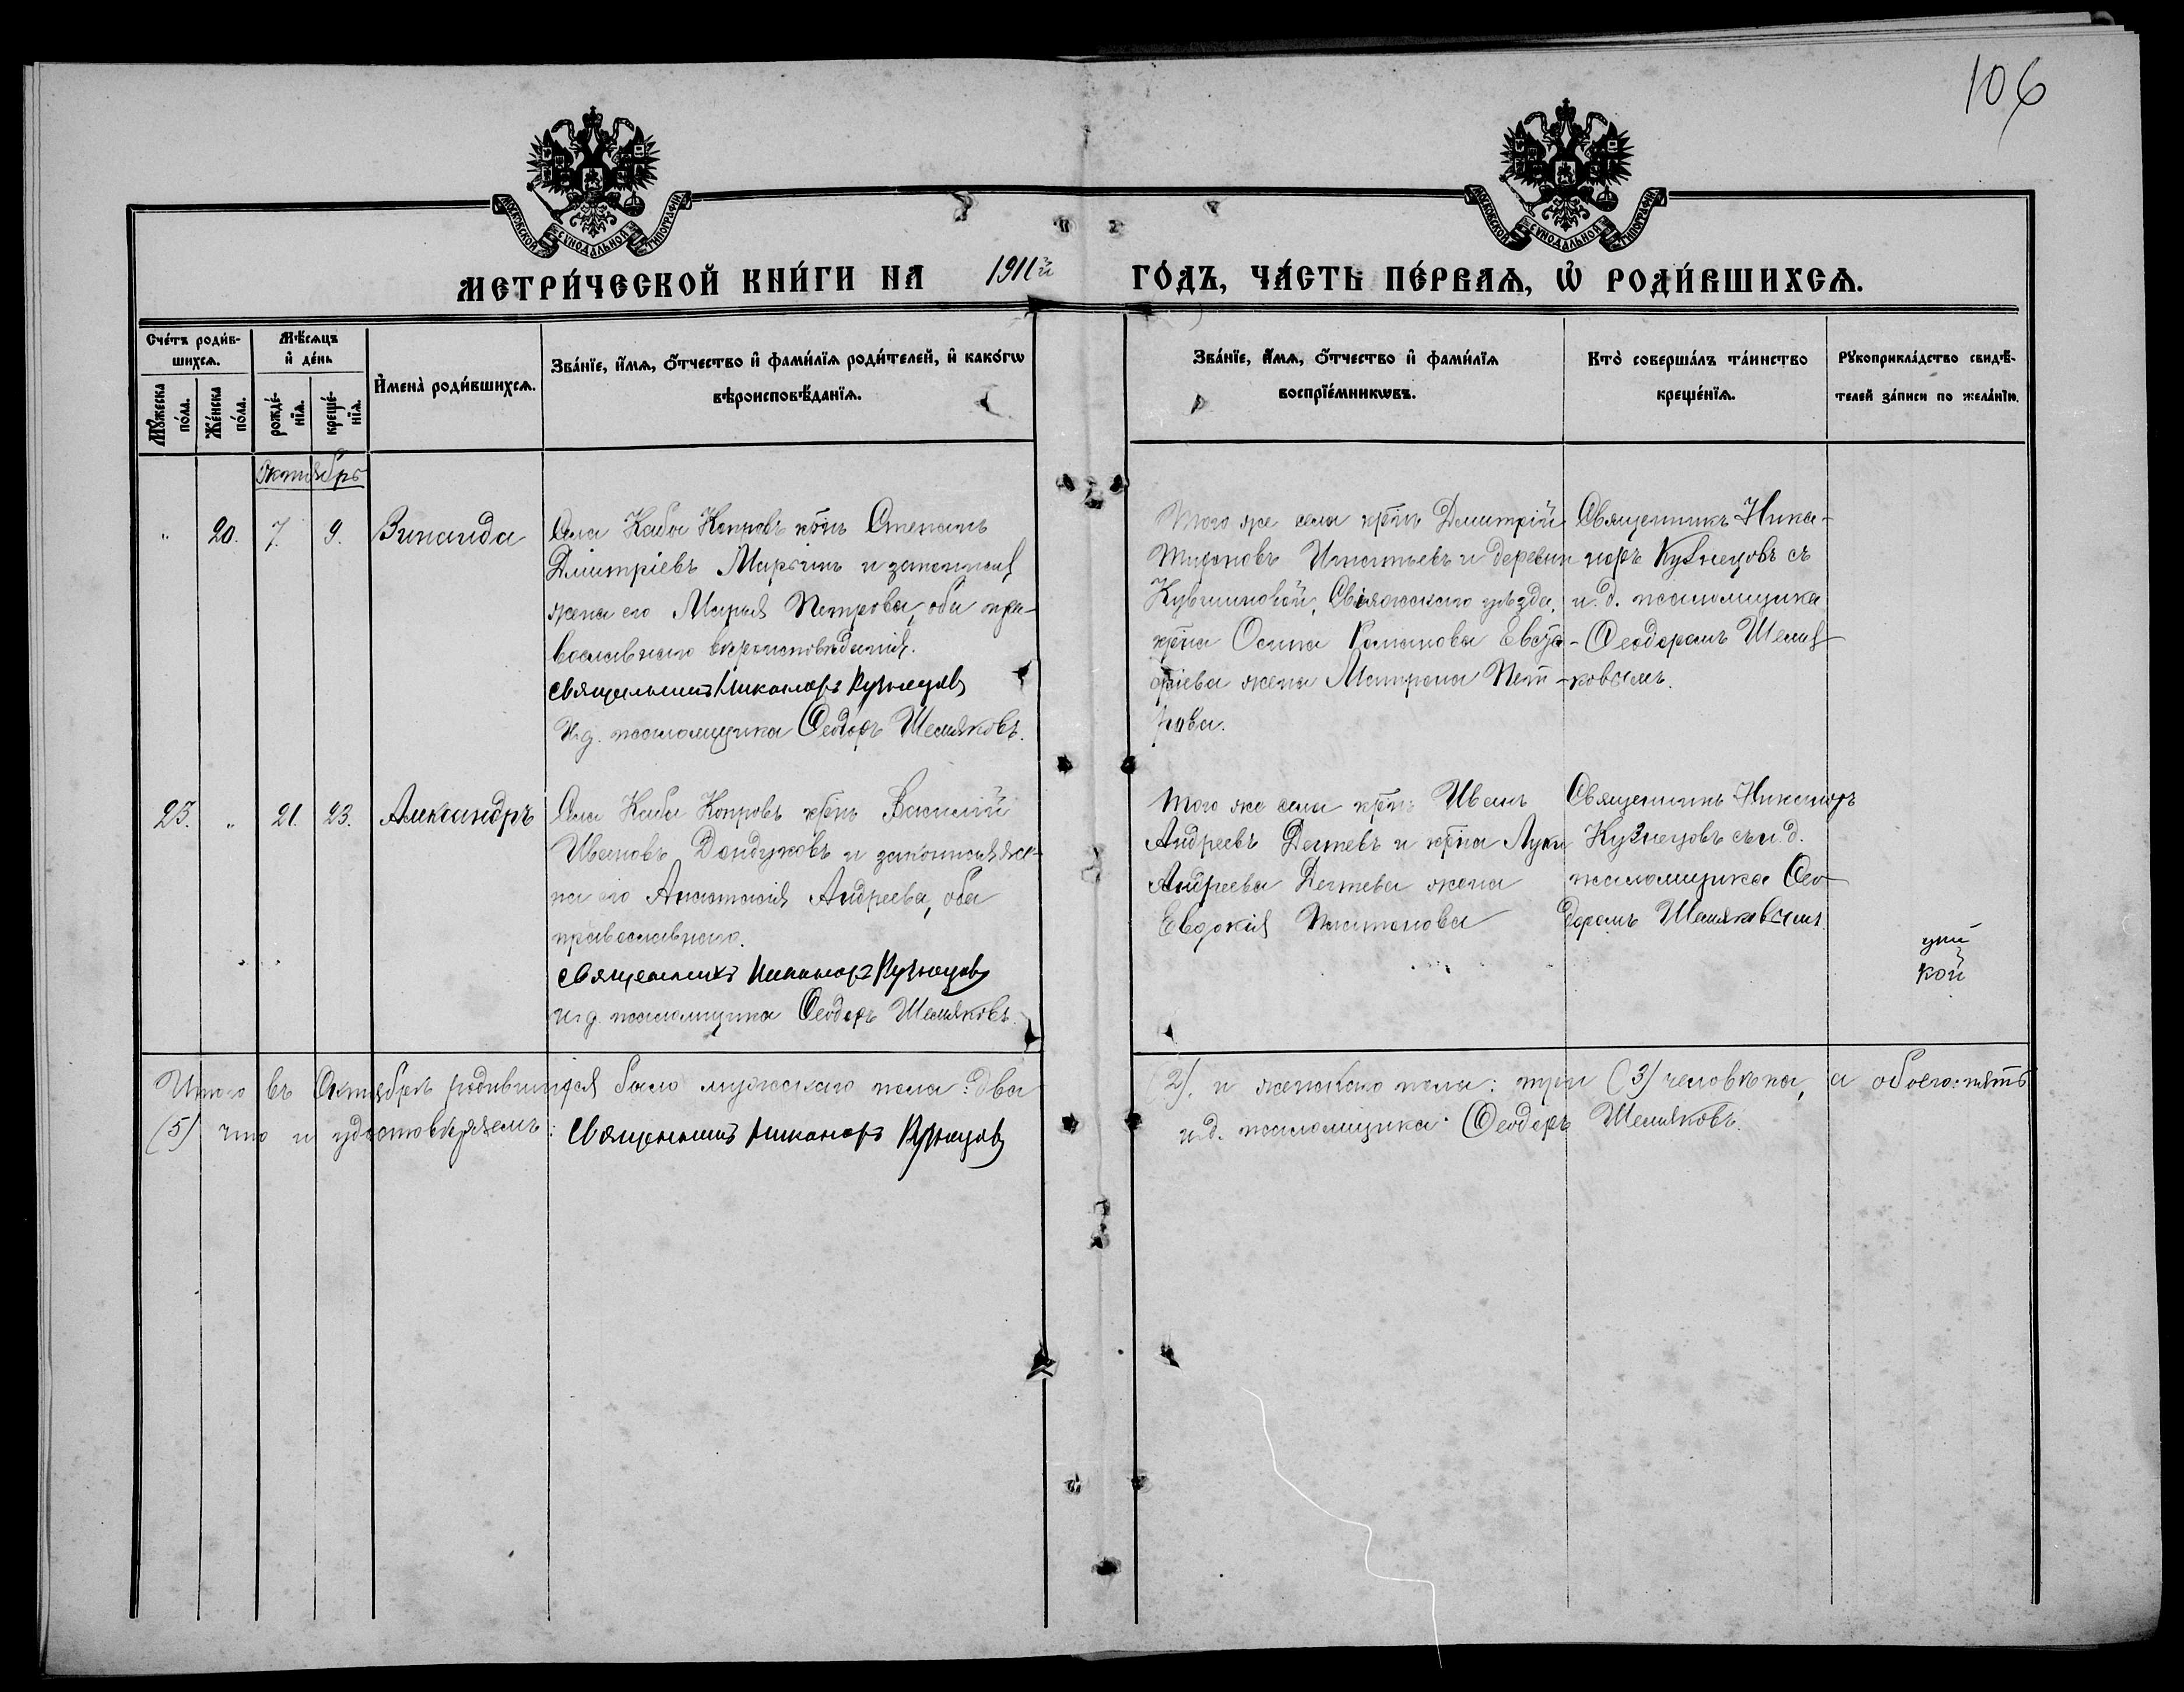 106
МОСКОВСКОЙ СУНОДАЛЬНОЙ ТИПОГРАФІИ
МОСКОВСКОЙ СУНОДАЛЬНОЙ ТИПОГРАФІИ
МЕТРИ́ЧЕСКОЙ КНИ́ГИ НА 1911й ГО́ДЪ, ЧА́СТЬ ПЕ́РВАѦ, Ѡ РОДИ́ВШИХСѦ.
Сче́тъ роди́в-
шихсѧ.
Мꙋ́жеска
по́ла.
Же́нска
по́ла.
Мѣ́сѧцъ
и де́нь
рожде́-
нїѧ.
креще́-
нїѧ.
Имена̀ роди́вшихсѧ.
Зва́нїе, и́мѧ, ѻ́тчество и фами́лїѧ роди́телей, и како́гѡ
вѣроисповѣ́данїѧ.
Зва́нїе, и́мѧ, ѻ́тчество и фами́лїѧ
воспрїе́мникѡвъ.
Кто̀ соверша́лъ та́инство
креще́нїѧ.
Рꙋкоприкла́дство свидѣ́-
телей за́писи по жела́нїю.
Октябрь
" 20. 7. 9. Зинаида
Села Каба Копровъ крѣнъ Степанъ
Дмитріевъ и законная
жена его Марья Петрова, оба пра-
вославнаго вѣроисповѣданія.
Священникъ Никаноръ Кузнецовъ
И. д. псаломщика Ѳеодоръ Шемяковъ.
Того же села крѣнъ Дмитрій
Игнатьевъ и деревни
Кувшиновой, Свіяжскаго уѣзда,
крѣна Осипа Романова Евста-
фіева жена Матрона Пет-
рова.
Священникъ Ника-
норъ Кузнецовъ съ
и. д. псаломщика
Ѳеодоромъ Шемя-
ковымъ.
23. " 21. 23. Александръ
Села Каба Копровъ крѣнъ Василій
Ивановъ Дондуковъ и законная же-
на его Анастасія Андреева, оба
православнаго.
Священникъ Никаноръ Кузнецовъ
и. д. псаломщика Ѳеодоръ Шемяковъ.
Того же села крѣнъ Иванъ
Андреевъ Дегтевъ и крѣна Луки
Андреева Дегтева жена
Евдокія Платонова
Священникъ Никаноръ
Кузнецовъ съ и. д.
псаломщика Ѳео-
доромъ Шемяковымъ.
кой
Итого въ Октябрѣ родившихся было мужскаго пола: два (2), и женскаго пола: три (3) человѣка, а обоего: пять
(5) что и удостовѣряемъ: Священникъ Никаноръ Кузнецовъ и. д. псаломщика Ѳеодоръ Шемяковъ.